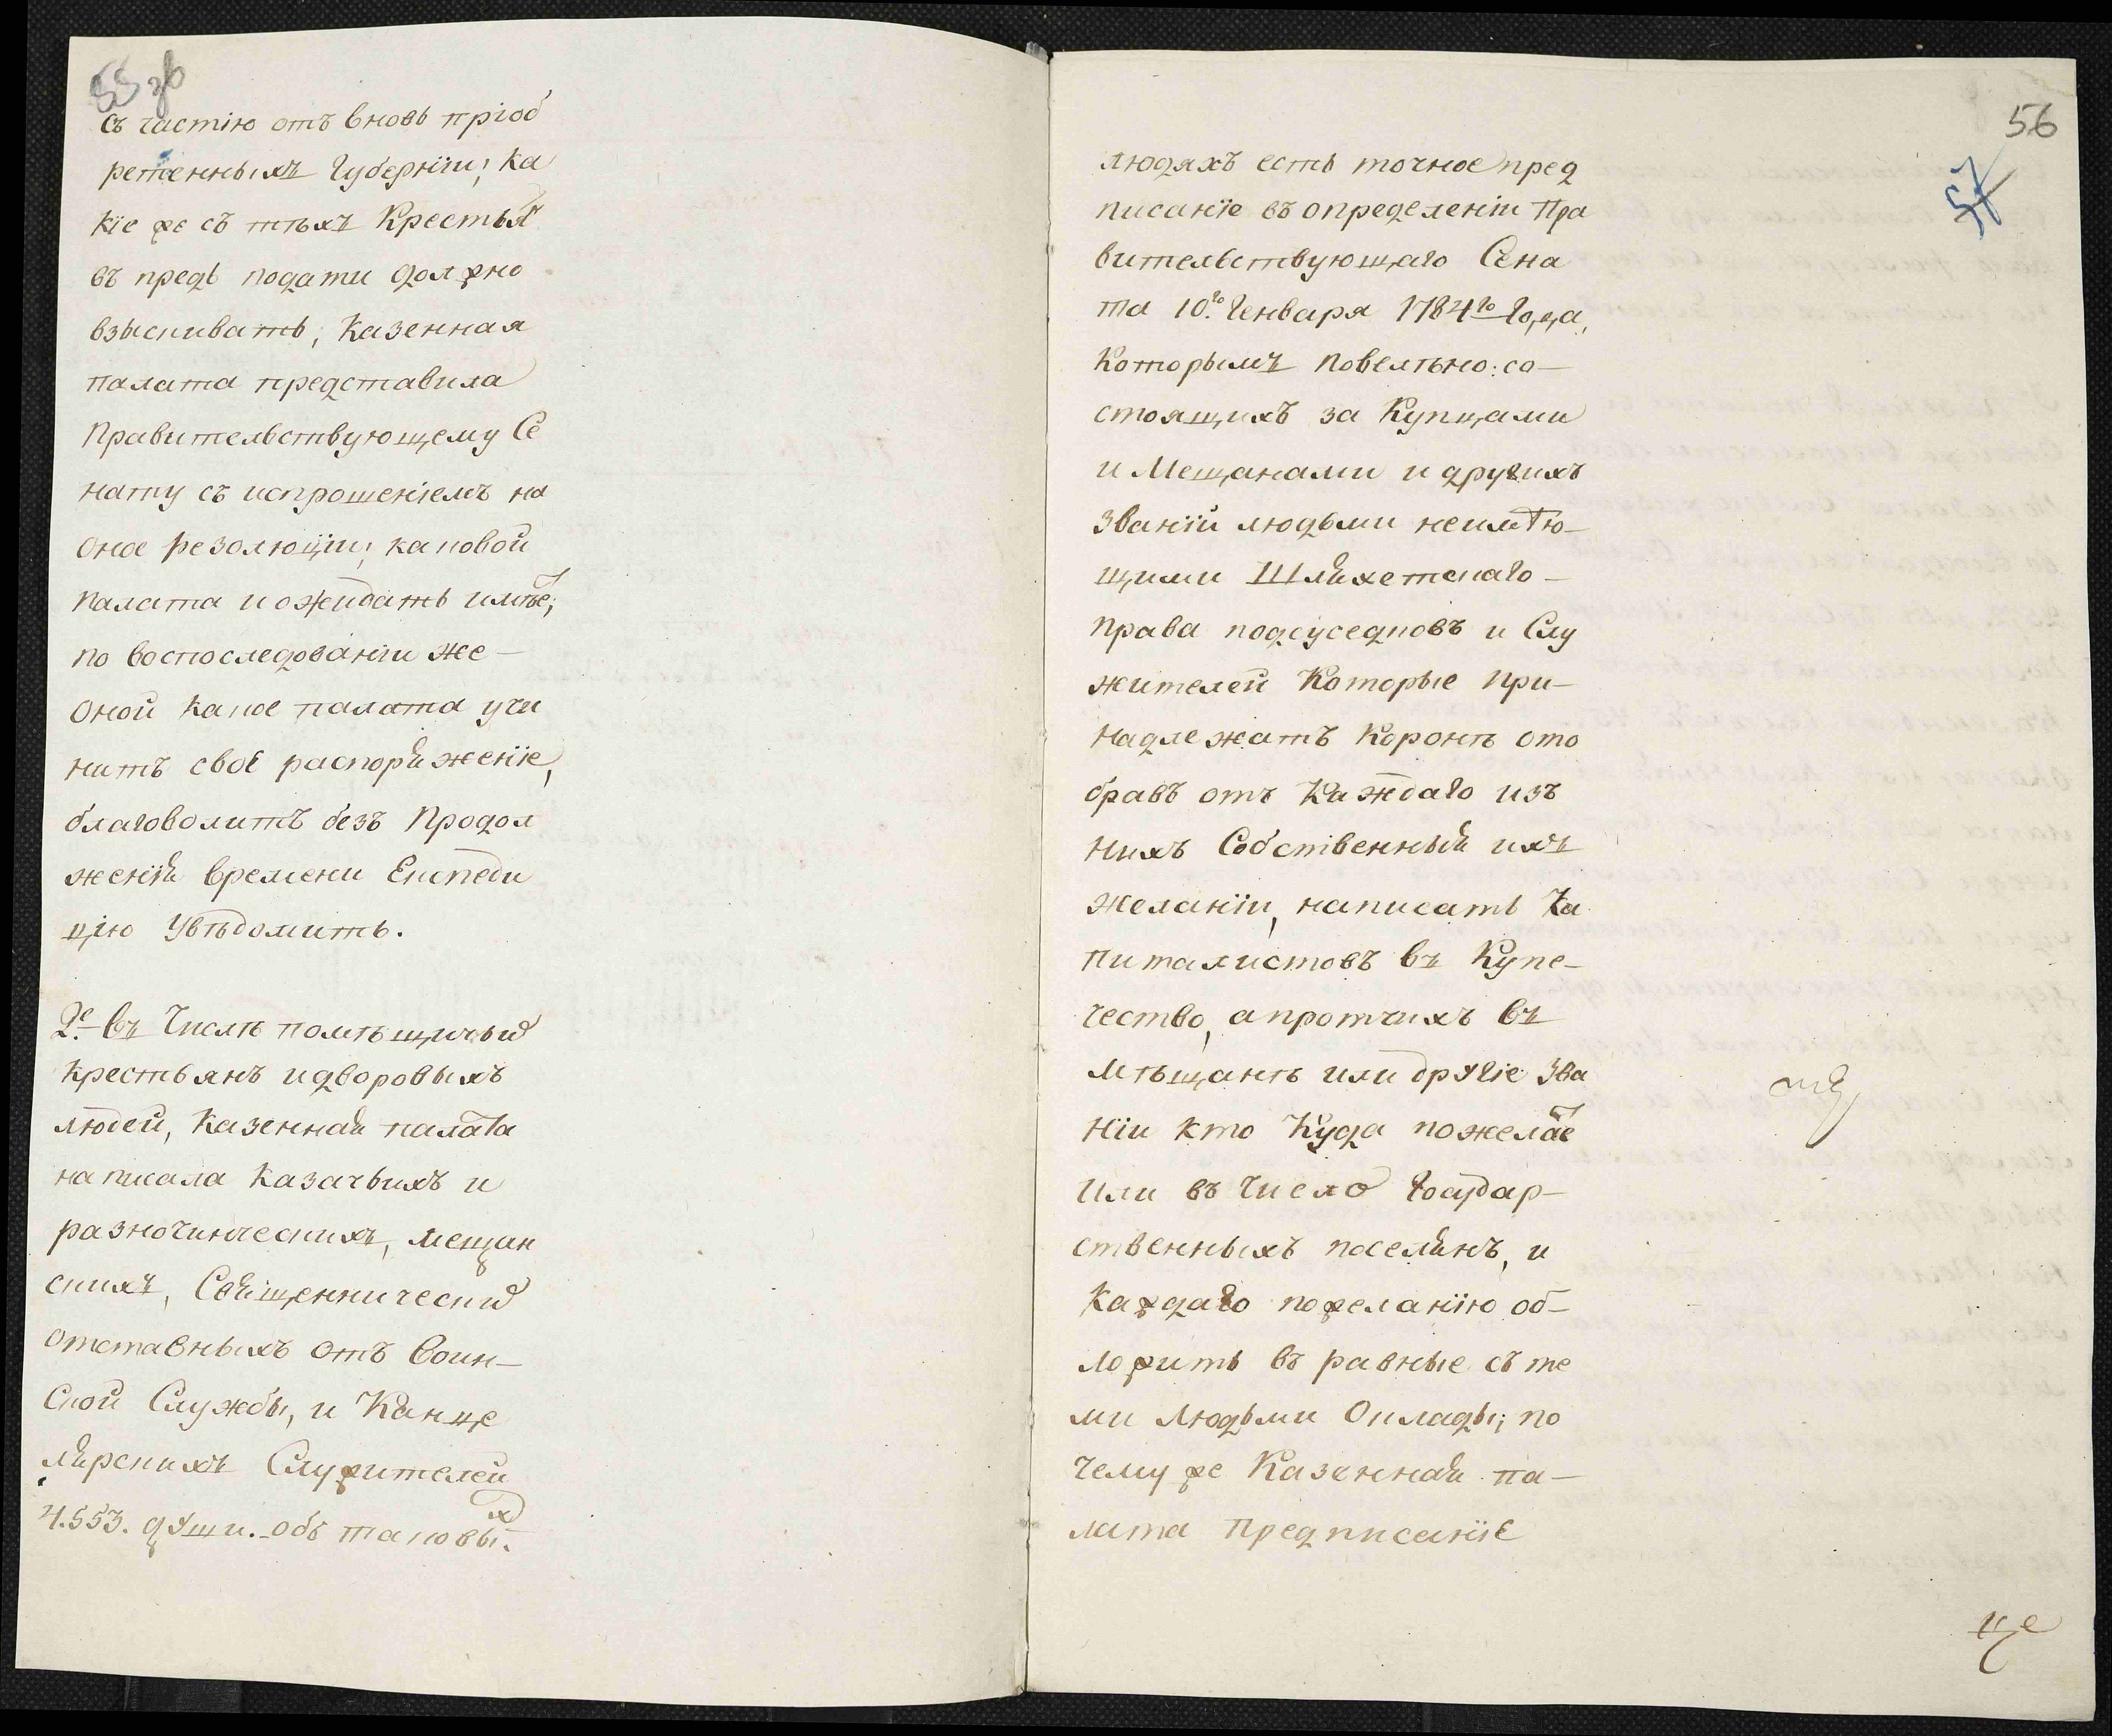 55 зв
съ частію отъ вновь пріоб
ретенныхъ Губерніи; ка
кіе же съ тѣхъ Крестья͠н
въ предь подати должно
взыскивать, Казенная
палата представила
Правительствующему Се
нату съ испрошеніемъ на
оное резолюціи; каковой
палата и ожидать имѣе͠т;
по воспоследованіи же —
оной какое палата учи
нитъ свое распоряженіе,
благоволитъ безъ Продол
женія времени Експеди
цію Увѣдомить.
2е. въ Числѣ помѣщичьих
крестьянъ и дворовыхъ
людей, Казенная палата
написала Казачьихъ и
разночинческихъ, мещан
скихъ, Священнических
отставныхъ отъ Воин—
ской Службы, и Канце
лярскихъ Служителей
4.553. дУши. объ таковых.
56
57
людяхъ есть точное пред
писаніе въ определеніи Пра
вительствующаго Сена
та 10го. Генваря 1784го Года,
Которымъ повелѣно: со—
стоящихъ за Купцами
и Мещанами и другихъ
Званій людьми неимѣю—
щими Шляхетскаго —
права подсуседковъ и Слу
жителей Которые при—
надлежатъ Коронѣ ото
бравъ отъ Каждаго изъ
нихъ Собственныя ихъ
желаніи, написать Ка
питалистовъ въ Купе—
чество, апротчихъ въ
мѣщанѣ или друГіе Зва
ніи кто Куда пожелае͠т
Или въ Число Государ—
ственныхъ поселянъ, и
Каждаго пожеланію об—
ложить въ равные съ те
ми Людьми Оклады; по
Чему же Казенная па—
лата Предписаніе